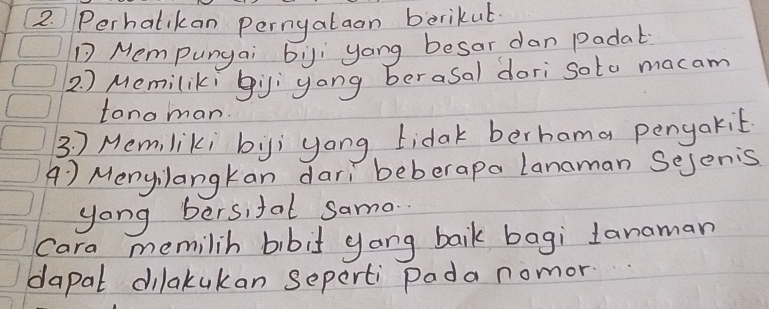 2. Perhatikan pernyataan berikut.
1) Mempunyai biji yang besar dan padat.
2.) Memiliki biji yang berasal dari satu macam
tanaman.
3.) Memiliki biji yang tidak berhama penyakit.
4.) Menyilangkan dari beberapa tanaman sejenis
yang bersifat sama..
Cara memilih bibit yang baik bagi tanaman
dapat dilakukan seperti pada nomor...